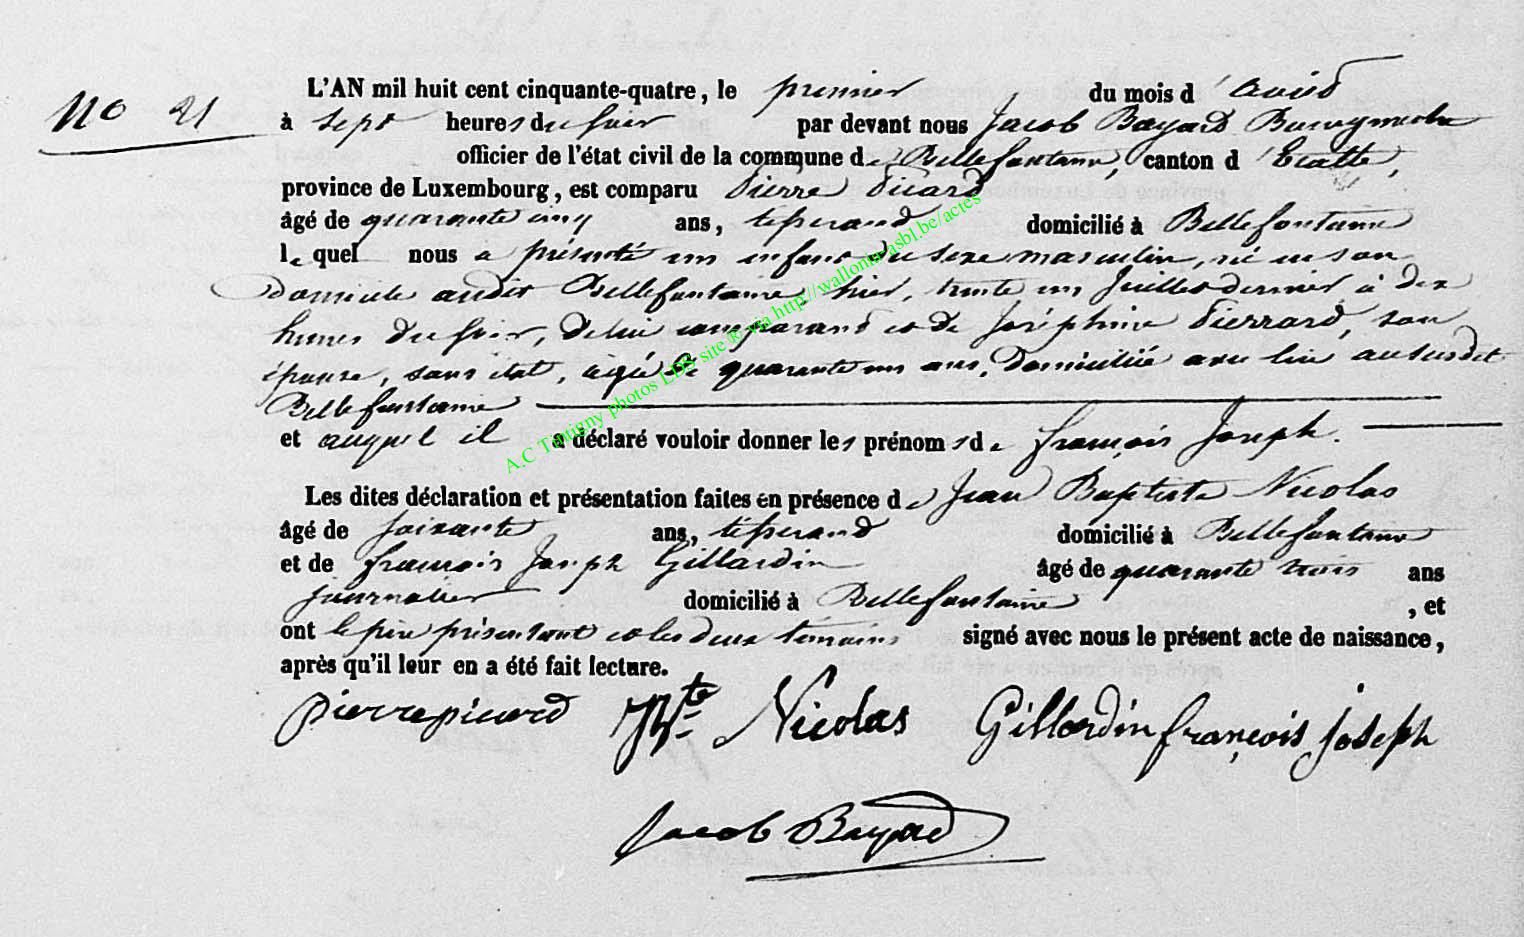 No 21
L'AN mil huit cent cinquante-quatre, le premier du mois d'août
à sept heures du soir par devant nous Jacob Bayard Bourgmestre
officier de l'état civil de la commune de Bellefontaine, canton d'Etalle,
province de Luxembourg, est comparu Pierre Picard
âgé de quarante cinq ans, tisserand domicilié à Bellefontaine
lequel nous a présenté un enfant du sexe masculin, né en son
domicile audit Bellefontaine, hier, trente un Juillet dernier à dix
heures du soir, de lui comparant et de Joséphine Pierrard, son
épouse, sans état, agée de quarante un ans, domiciliée avec lui au susdit
Bellefontaine
et auquel il a déclaré vouloir donner les prénoms de françois Joseph.
Les dites déclaration et présentation faites en présence de Jean Baptiste Nicolas
âgé de soixante ans, tisserand domicilié à Bellefontaine
et de francois Joseph Gillardin âgé de quarante trois ans
journalier domicilié à Bellefontaine , et
ont le père présentant et les deux témoins signé avec nous le présent acte de naissance,
après qu'il leur en a été fait lecture.
pierre picard JBte Nicolas Gillardin françois joseph
Jacob Bayard
A.C Tintigny photos LDB site @ via http://wallonia-asbl.be/actes